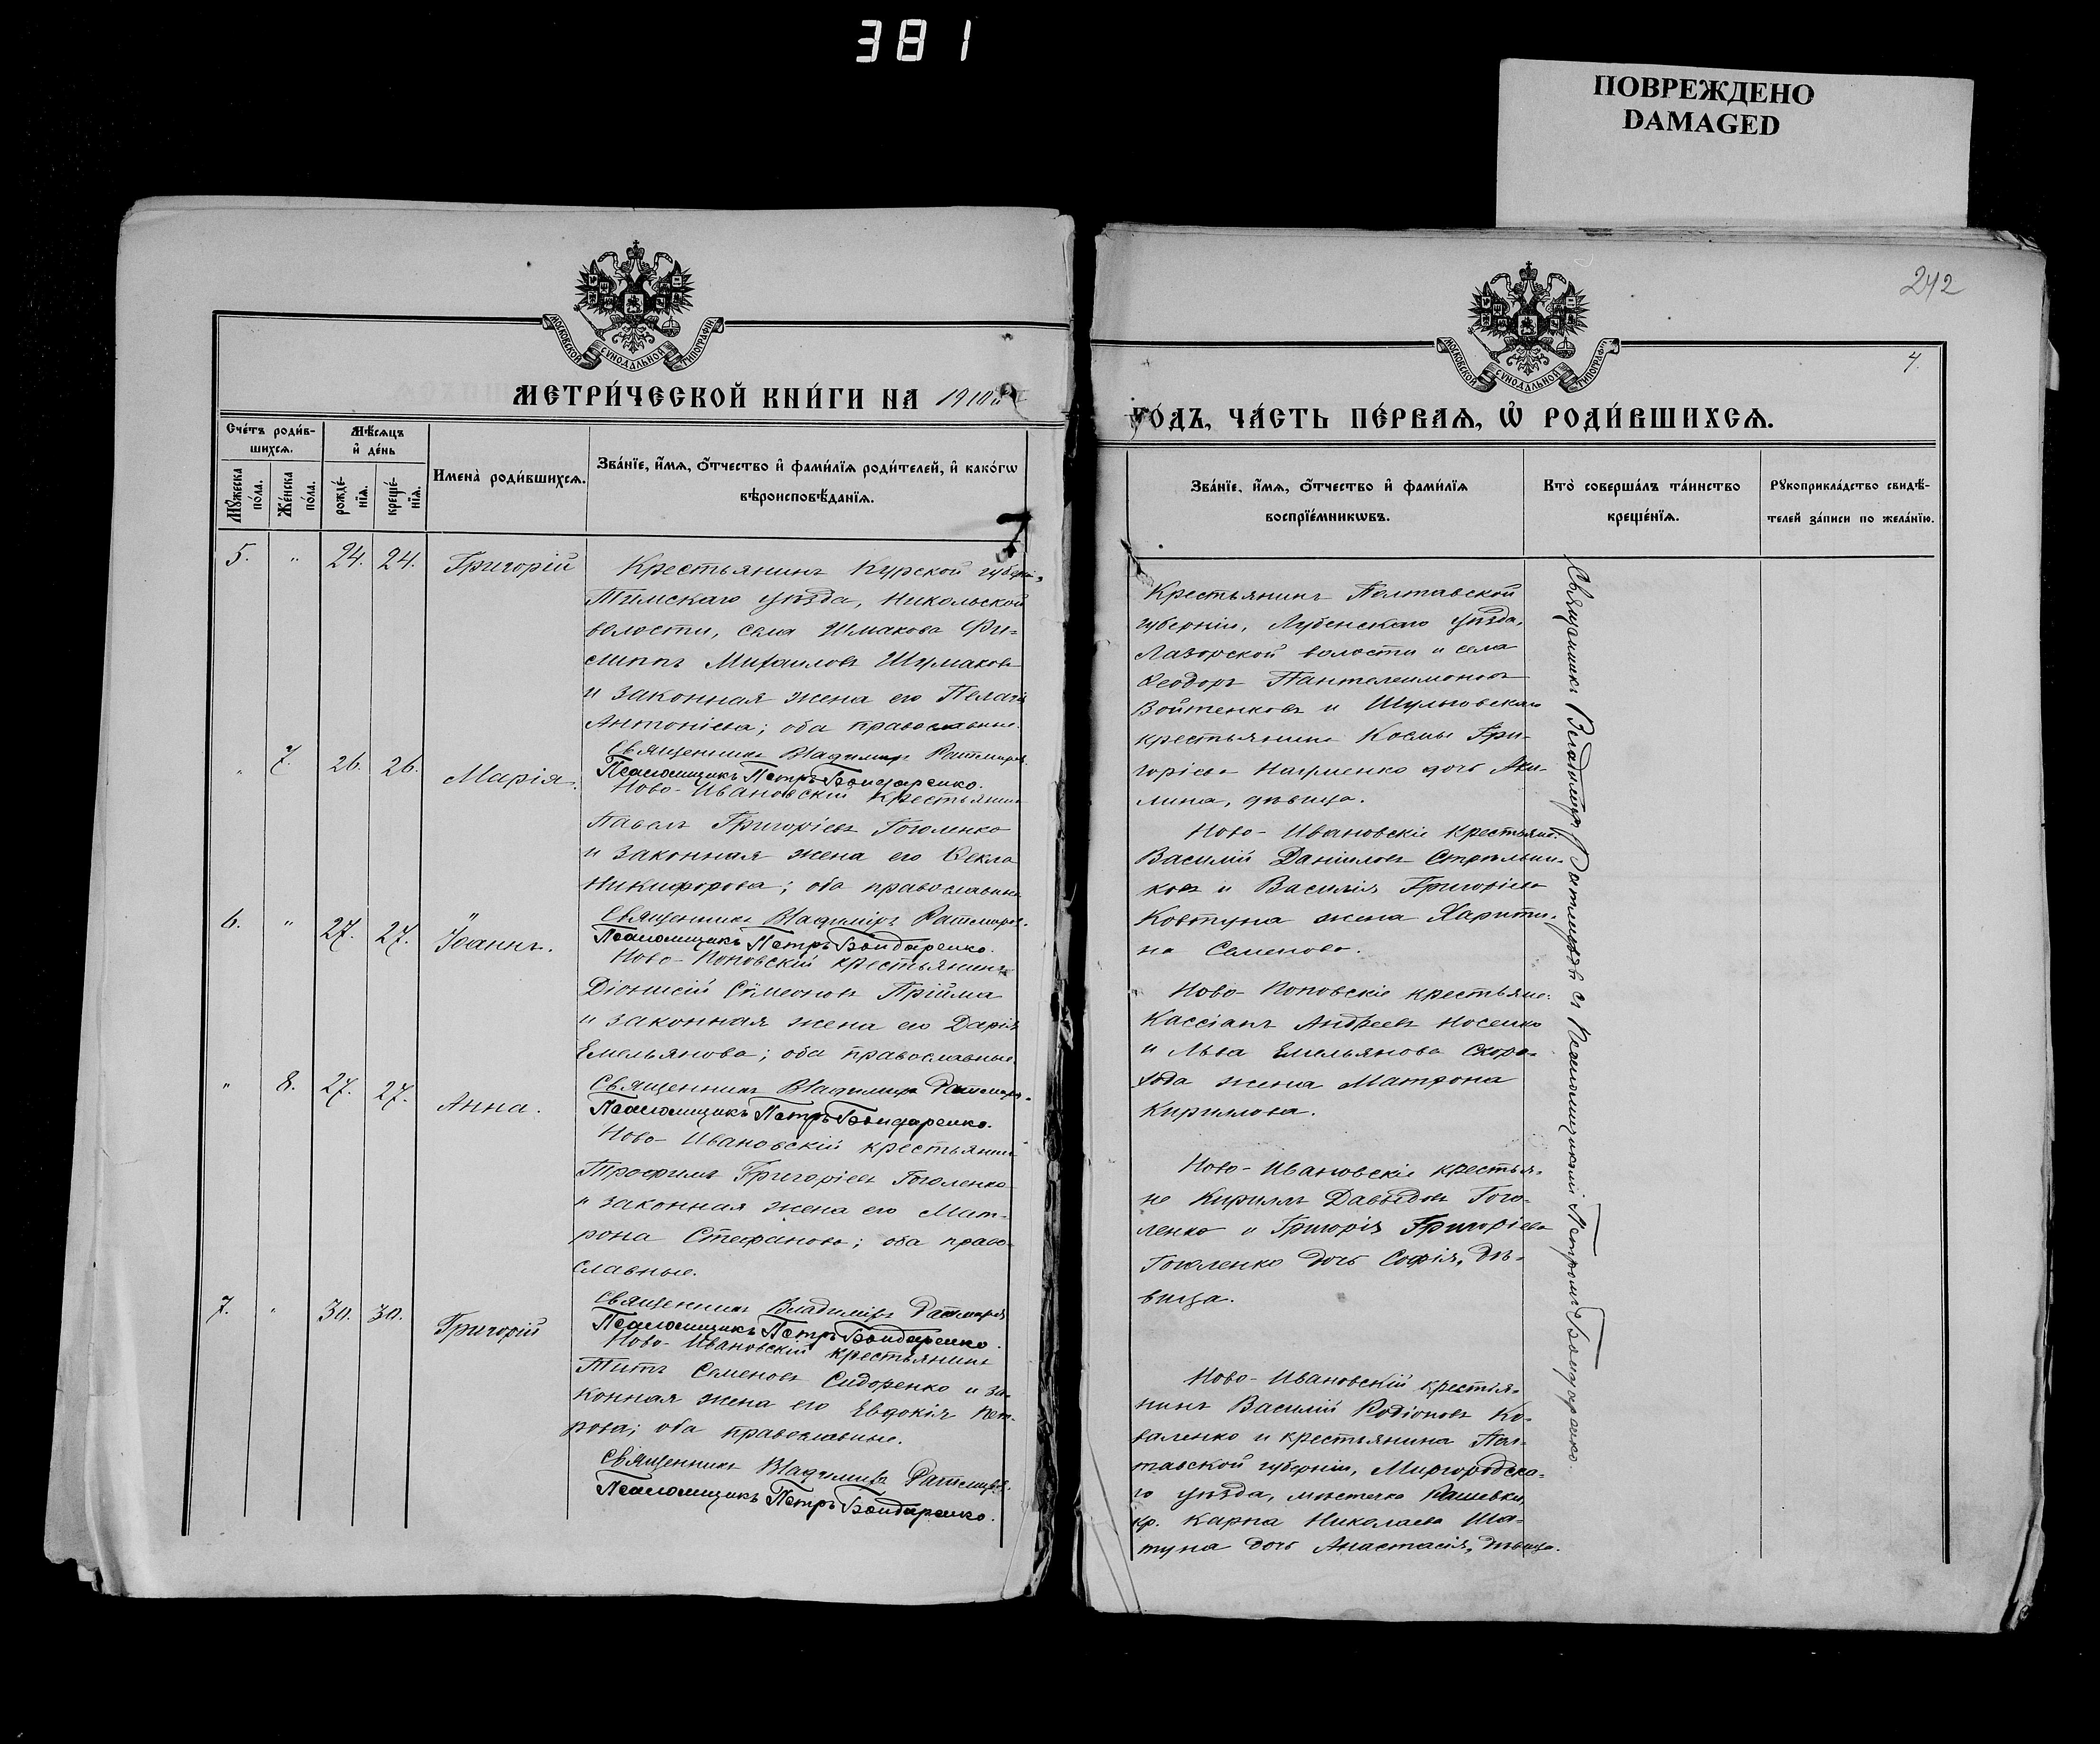 381
ПОВРЕЖДЕНО
DAMAGED
242
4.
МОСКОВСКОЙ СѴНОДАЛЬНОЙ ТИПОГРАФІИ
МЕТРИ́ЧЕСКОЙ КНИ́ГИ НА 1910й
Сче́тъ роди́в-
шихсѧ.
Мѣ́сѧцъ
и҆ де́нь
Мꙋ́жеска
по́ла.
Же́нска
по́ла.
рожде́-
нїѧ.
креще́-
нїѧ.
Имена̀ роди́вшихсѧ.
Зва́нїе, и҆́мѧ, ѻ҆́тчество и҆ фами́лїѧ роди́телей, и҆ како́гѡ
вѣроисповѣ́данїѧ.
5. " 24. 24. Григорій
Крестьянинъ Курской губерн.
Тимскаго уѣзда, Никольской
волости, села Шмакова Фи-
липпъ Михаиловъ Шумаковъ
и законная жена его Пелагія
Антоніева; оба православные.
Священникъ Владимиръ Ратмировъ
Псаломщикъ Петръ Бондаренко.
" 7. 26. 26. Марія.
Ново-Ивановскій крестьянинъ
Павелъ Григоріевъ Гоголенко
и законная жена его Ѳекла
Никифорова; оба православные
Священникъ Владиміръ Ратмировъ.
Псаломщикъ Петръ Бондаренко.
6. " 27. 27. Іоаннъ.
Ново-Поповскій крестьянинъ
Діонисій Сѷмеоновъ Прійма
и законная жена его Дарія
Емельянова; оба православные.
Священникъ Владимиръ Ратмировъ.
Псаломщикъ Петръ Бондаренко.
" 8. 27. 27. Анна.
Ново-Ивановскій крестьянинъ
Трофимъ Григоріевъ Гоголенко
и законная жена его Мат-
рона Стефанова; оба право-
славные.
Священникъ Владиміръ Ратмировъ
Псаломщикъ Петръ Бондаренко.
7. " 30. 30. Григорій
Ново-Ивановскій крестьянинъ
Титъ Семеновъ Сидоренко и за-
конная жена его Евдокія Пет-
рова; оба православные.
Священникъ Владимиръ Ратмировъ.
Псаломщикъ Петръ Бондаренко.
МОСКОВСКОЙ СѴНОДАЛЬНОЙ ТИПОГРАФІИ
ГО́ДЪ, ЧА́СТЬ ПЕ́РВАѦ, Ѽ РОДИ́ВШИХСѦ.
Зва́нїе, и҆́мѧ, ѻ҆́тчество и҆ фами́лїѧ
воспрїе́мникѡвъ.
Кто̀ соверша́лъ та́инство
креще́нїѧ.
Рꙋкоприкла́дство свидѣ́-
телей за́писи по жела́нїю.
Крестьянинъ Полтавской
губерніи, Лубенскаго уѣзда,
Лазорской волости и села
Ѳеодоръ Пантелеимоновъ
Войтенковъ и
крестьянина Косьмы Гри-
горіева дочь Аки-
лина, дѣвица.
Ново-Ивановскіе крестьяне:
Василій Даніиловъ Стрѣльни-
ковъ и Василія Григоріева
Ковтуна жена Харити-
на Семенова.
Ново-Поповскіе крестьяне:
Кассіанъ Андреевъ Носенко
и Льва Емельянова Скоро-
хода жена Матрона
Кириллова.
Ново-Ивановскіе крестья-
не Кириллъ Давыдовъ Гого-
ленко и Григорія Григоріева
Гоголенко дочь Софія, дѣ-
вица.
Ново-Ивановскій крестья-
нинъ Василій Родіоновъ Ко-
валенко и крестьянина Пол-
тавской губерніи, Миргородска-
го уѣзда, мѣстечка Рашевки,
кр. Карпа Николаева Ша-
туна дочь Анастасія, дѣвица.
Священникъ Владимиръ Ратмировъ съ Псаломщикомъ Петромъ Бондаренко.